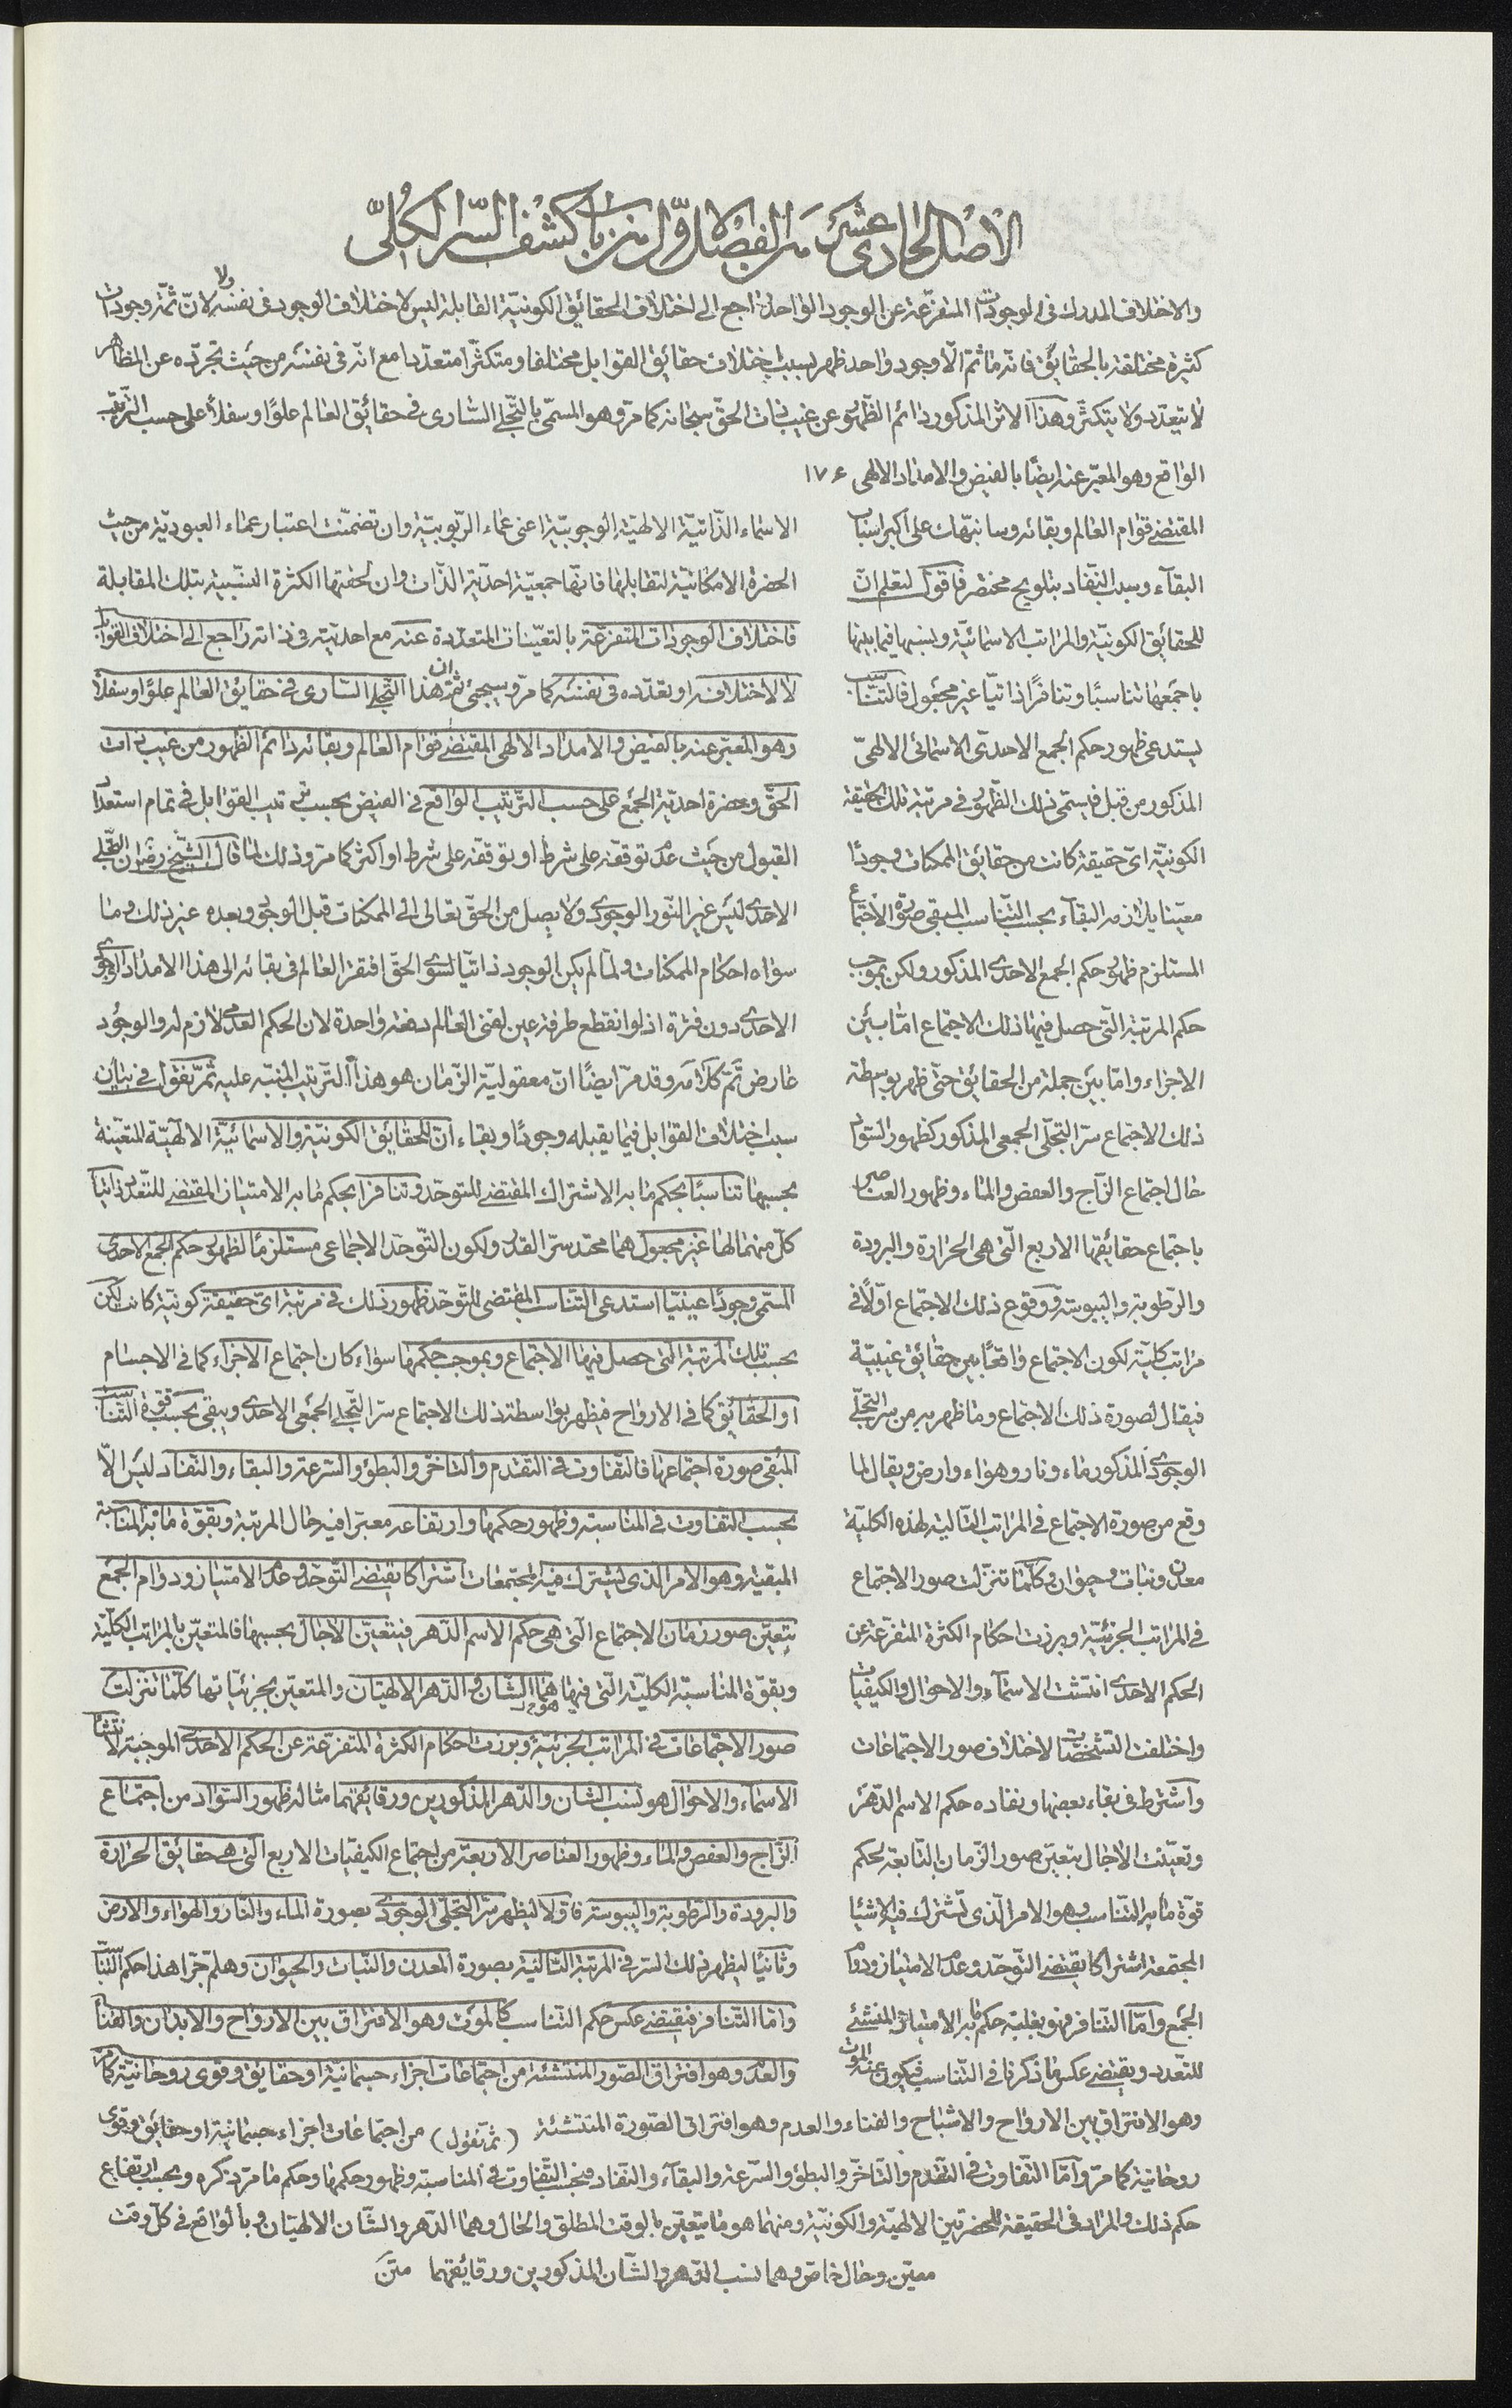 الأصل الحادي عشر من الفصل الاوّل من باب كشف السرّ الكلّي
والاختلاف المدرك في الوجودات المتفرّعة عن الوجود الواحد راجع الى اختلاف الحقائق الكونيّة القابلة ليس لاختلاف الوجود في نفسه ولا لانّ ثمّة وجودات
كثيرة مختلفة بالحقائق فانّه ما ثمّ الّا وجود واحد ظهر بسبب اختلاف حقائق القوابل مختلفا ومتكثّرا متعدّدا مع انّه في نفسه من حيث تجرّده عن المظاهر
لا يتعدّد ولا يتكثّر وهذا الاثر المذكور دائم الظهور عن غيب ذات الحقّ سبحانه كما مرّ وهو المسمّى بالتجلّي السّاري في حقائق العالم علوًا وسفلًا على حسب الترتيب
الواقع وهو المعبّر عنه ايضًا بالفيض والامداد الالهي ١٧٤
المقتضي قوام العالم وبقائه وسانبّهك على اكبر اسباب
البقآء وسبب النّفاد بتلويح مختصر فاقول لتعلم انّ
للحقائق الكونيّة والمراتب الاسمائيّة ونسبها فيما بينها
باجمعها تناسبًا وتنافرًا ذاتيّا غير مجعول فالتّناسب
يستدعي ظهور حكم الجمع الاحدي الاسمائي الالهيّ
المذكور من قبل فيستمي ذلك الظّهور في مرتبة تلك الحقيقة
الكونيّة ايّ حقيقة كانت من حقائق الممكنات وجودًا
معيّنا يلازمه البقآء بحسب التّناسب المبقي صورة الاجتماع
المستلزم ظهور حكم الجمع الاحدي المذكور ولكن بموجب
حكم المرتبة الّتي حصل فيها ذلك الاجتماع امّا بين
الاجزاء وامّا بين جملة من الحقائق حتّى ظهر بواسطة
ذلك الاجتماع سرّ التجلّى الجمعي المذكور كظهور السّواد
حال اجتماع الزّاج والعفص والماء وظهور العناصر
باجتماع حقائقها الاربع الّتي هي الحرارة والبرودة
والرّطوبة واليبوسة ووقوع ذلك الاجتماع اوّلًا في
مراتب كلية لكون الاجتماع واقعًا بين حقائق غيبيّة
فيقال لصورة ذلك الاجتماع وما ظهر به من سرّ التجلّي
الوجودي المذكور ماء ونار وهواء وارض ويقال لما
وقع من صورة الاجتماع في المراتب التّالية لهذه الكلّيّة
معدن ونبات وحيوان وكلّما تنزّلت صور الاجتماع
في المراتب الجزئيّة وبرزت احكام الكثرة المتفرّعة عن
الحكم الاحدي انتشت الاسمآء والاحوال والكيفيّات
واختلفت التّشخّصات لاختلاف صور الاجتماعات
واشترط في بقاء بعضها ونفاده حكم الاسم الدّهر
وتعيّنت الآجال بتعيّن صور الزّمان التّابعة لحكم
قوّة ما به التّناسب وهو الامر الّذي تشترك فيه الاشيا
المجتمعة اشتراكا يقتضي التّوحّد وعدم الامتياز ودوام
الجمع وامّا التّنافر فهو بغلبة حكم ما به الامتياز المنشئ
للتعدد ويقتضي عكس ما ذكرنا في التّناسب فيكون عنه الموت
الاسماء الذّاتيّة الالهيّة الوجوبيّة اعني عماء الرّبوبيّة وان تضمّنت اعتبار عماء العبوديّة من حيث
الحضرة الامكانيّة لتقابلها فانّها جمعيّة احديّة الذّات وان لحقتها الكثرة النسبيّة بتلك المقابلة
فاختلاف الوجودات المتفرّعة بالتعيّنات المتعدّدة عنه مع احديته في ذاته راجع الى اختلاف القوابل
لا لاختلافه او تعدّده في نفسه كما مرّ وسيجئ ثمّ ان هذا التجلي السّاري في حقايق العالم علوًا وسفلًا
وهو المعبّر عنه بالفيض والامداد الالهي المقتضي قوام العالم وبقائه دائم الظهور من غيب ذات
الحقّ وحضرة احديّة الجمع على حسب الترتيب الواقع في الفيض بحسب ترتيب القوابل في تمام استعداد
القبول من حيث عدم توقفه على شرط او توقفه على شرط او اكثر كما مرّ وذلك لما قال الشّيخ رض ان التجلّي
الاحدي ليس غير النّور الوجودي ولا يصل من الحقّ تعالى الى الممكنات قبل الوجود وبعده غير ذلك وما
سواه احكام الممكنات ولمّا لم يكن الوجود ذاتيّا لسوى الحقّ افتقر العالم في بقائه الى هذا الامداد الوجودي
الاحدي دون فترة اذ لو انقطع طرفة عين لفنى العالم دفعة واحدة لان الحكم العدمي لازم له والوجود
عارض ثمّ كلامه وقد مرّ ايضًا انّ معقوليّة الزّمان هو هذا الترتيب المنبّه عليه ثمّ نقول في بيان
سبب اختلاف القوابل فيما يقبله وجودًا وبقاء انّ للحقايق الكونيّة والاسمائيّة الالهيّة المتعيّنة
بحسبها تناسبًا بحكم ما به الاشتراك المقتضي للتوحّد وتنافرا بحكم ما به الامتياز المقتضي للتعّدد ذاتيًا
كلّ منهما لها غير مجعول هما محتد سرّ القدر ولكون التّوحّد الاجتماعي مستلزمًا لظهور حكم الجمع الاحدي
المسمّى وجودًا عينيّا استدعى التّناسب المقتضي للتّوحّد ظهور ذلك في مرتبة ايّ حقيقة كونيّة كانت لكن
بحسب تلك المرتبة الّتي حصل فيها الاجتماع وبموجب حكمها سواء كان اجتماع الاجزاء كما في الاجسام
او الحقائق كما في الارواح فيظهر بواسطة ذلك الاجتماع سرّ التّجلي الجمعي الاحدي ويبقى بحسب قوّة التّناسب
المبقي صورة اجتماعها فالتّفاوت في التّقدم والتّاخر والبطؤ والسّرعة والبقاء والنّفاد ليس الّا
بحسب التّفاوت في المناسبة وظهور حكمها وارتفاعه معتبرا فيه حال المرتبة وبقوّة ما به المناسبة
المبقية وهو الامر الّذي يشترك فيه المجتمعات اشتراكا يقتضي التّوحّد وعدم الامتياز ودوام الجمع
يتعيّن صور زمان الاجتماع الّتي هي حكم الاسم الدّهر فيتعيّن الآجال بحسبها فالمتعيّن بالمراتب الكلّيّة
وبقوّة المناسبة الكليّة الّتي فيها هما الشّان والدّهر الالهيّان والمتعيّن بجزئيّاتها كلّما تنزّلت
صور الاجتماعات في المراتب الجزئيّة وبرزت احكام الكثرة المتفرّعة عن الحكم الاحدي الموجبة لانتشا
الاسماء والاحوال هو نسب الشان والدّهر المذكورين ورقايقهما مثاله ظهور السّواد من اجتماع
الزّاج والعفص والماء وظهور العناصر الاربعة من اجتماع الكيفيّات الاربع الّتي هي حقائق الحرارة
والبرودة والرّطوبة واليبوسة فاوّلا ليظهر سرّ التجلّي الوجودي بصورة الماء والنّار والهواء والارض
وثانيًا ليظهر ذلك السّر في المرتبة التّالية بصورة المعدن والنّبات والحيوان وهلمّ جرّا هذا حكم التّناسب
وامّا التّنافر فيقتضي عكس حكم التّناسب كالموت وهو الافتراق بين الارواح والابدان والفناء
والعدم وهو افتراق الصّور المنتشئة من اجتماعات اجزاء جسمانيّة او حقايق وقوى روحانيّة كما مر
وهو الافتراق بين الارواح والاشباح والفناء والعدم وهو افتراق الصّورة المنتشئة (ثمّ نقول) من اجتماعات اجزاء جسمانيّة او حقائق وقوى
روحانيّة كما مرّ وامّا التّفاوت في التّقدّم والتّاخّر والبطؤ والسّرعة والبقآء والنّفاد فبحسب التّفاوت في المناسبة وظهور حكمها وحكم ما مرّ ذكره وبحسب ارتفاع
حكم ذلك والمراد في الحقيقة للحضرتين الالهيّة والكونيّة ومنهما هو ما يتعيّن بالوقت المطلق والحال وهما الدّهر والشّان الالهيّان وبالواقع في كلّ وقت
معيّن وحال خاصّ وهما نسب الدّهر والشّان المذكورين ورقايقهما متن